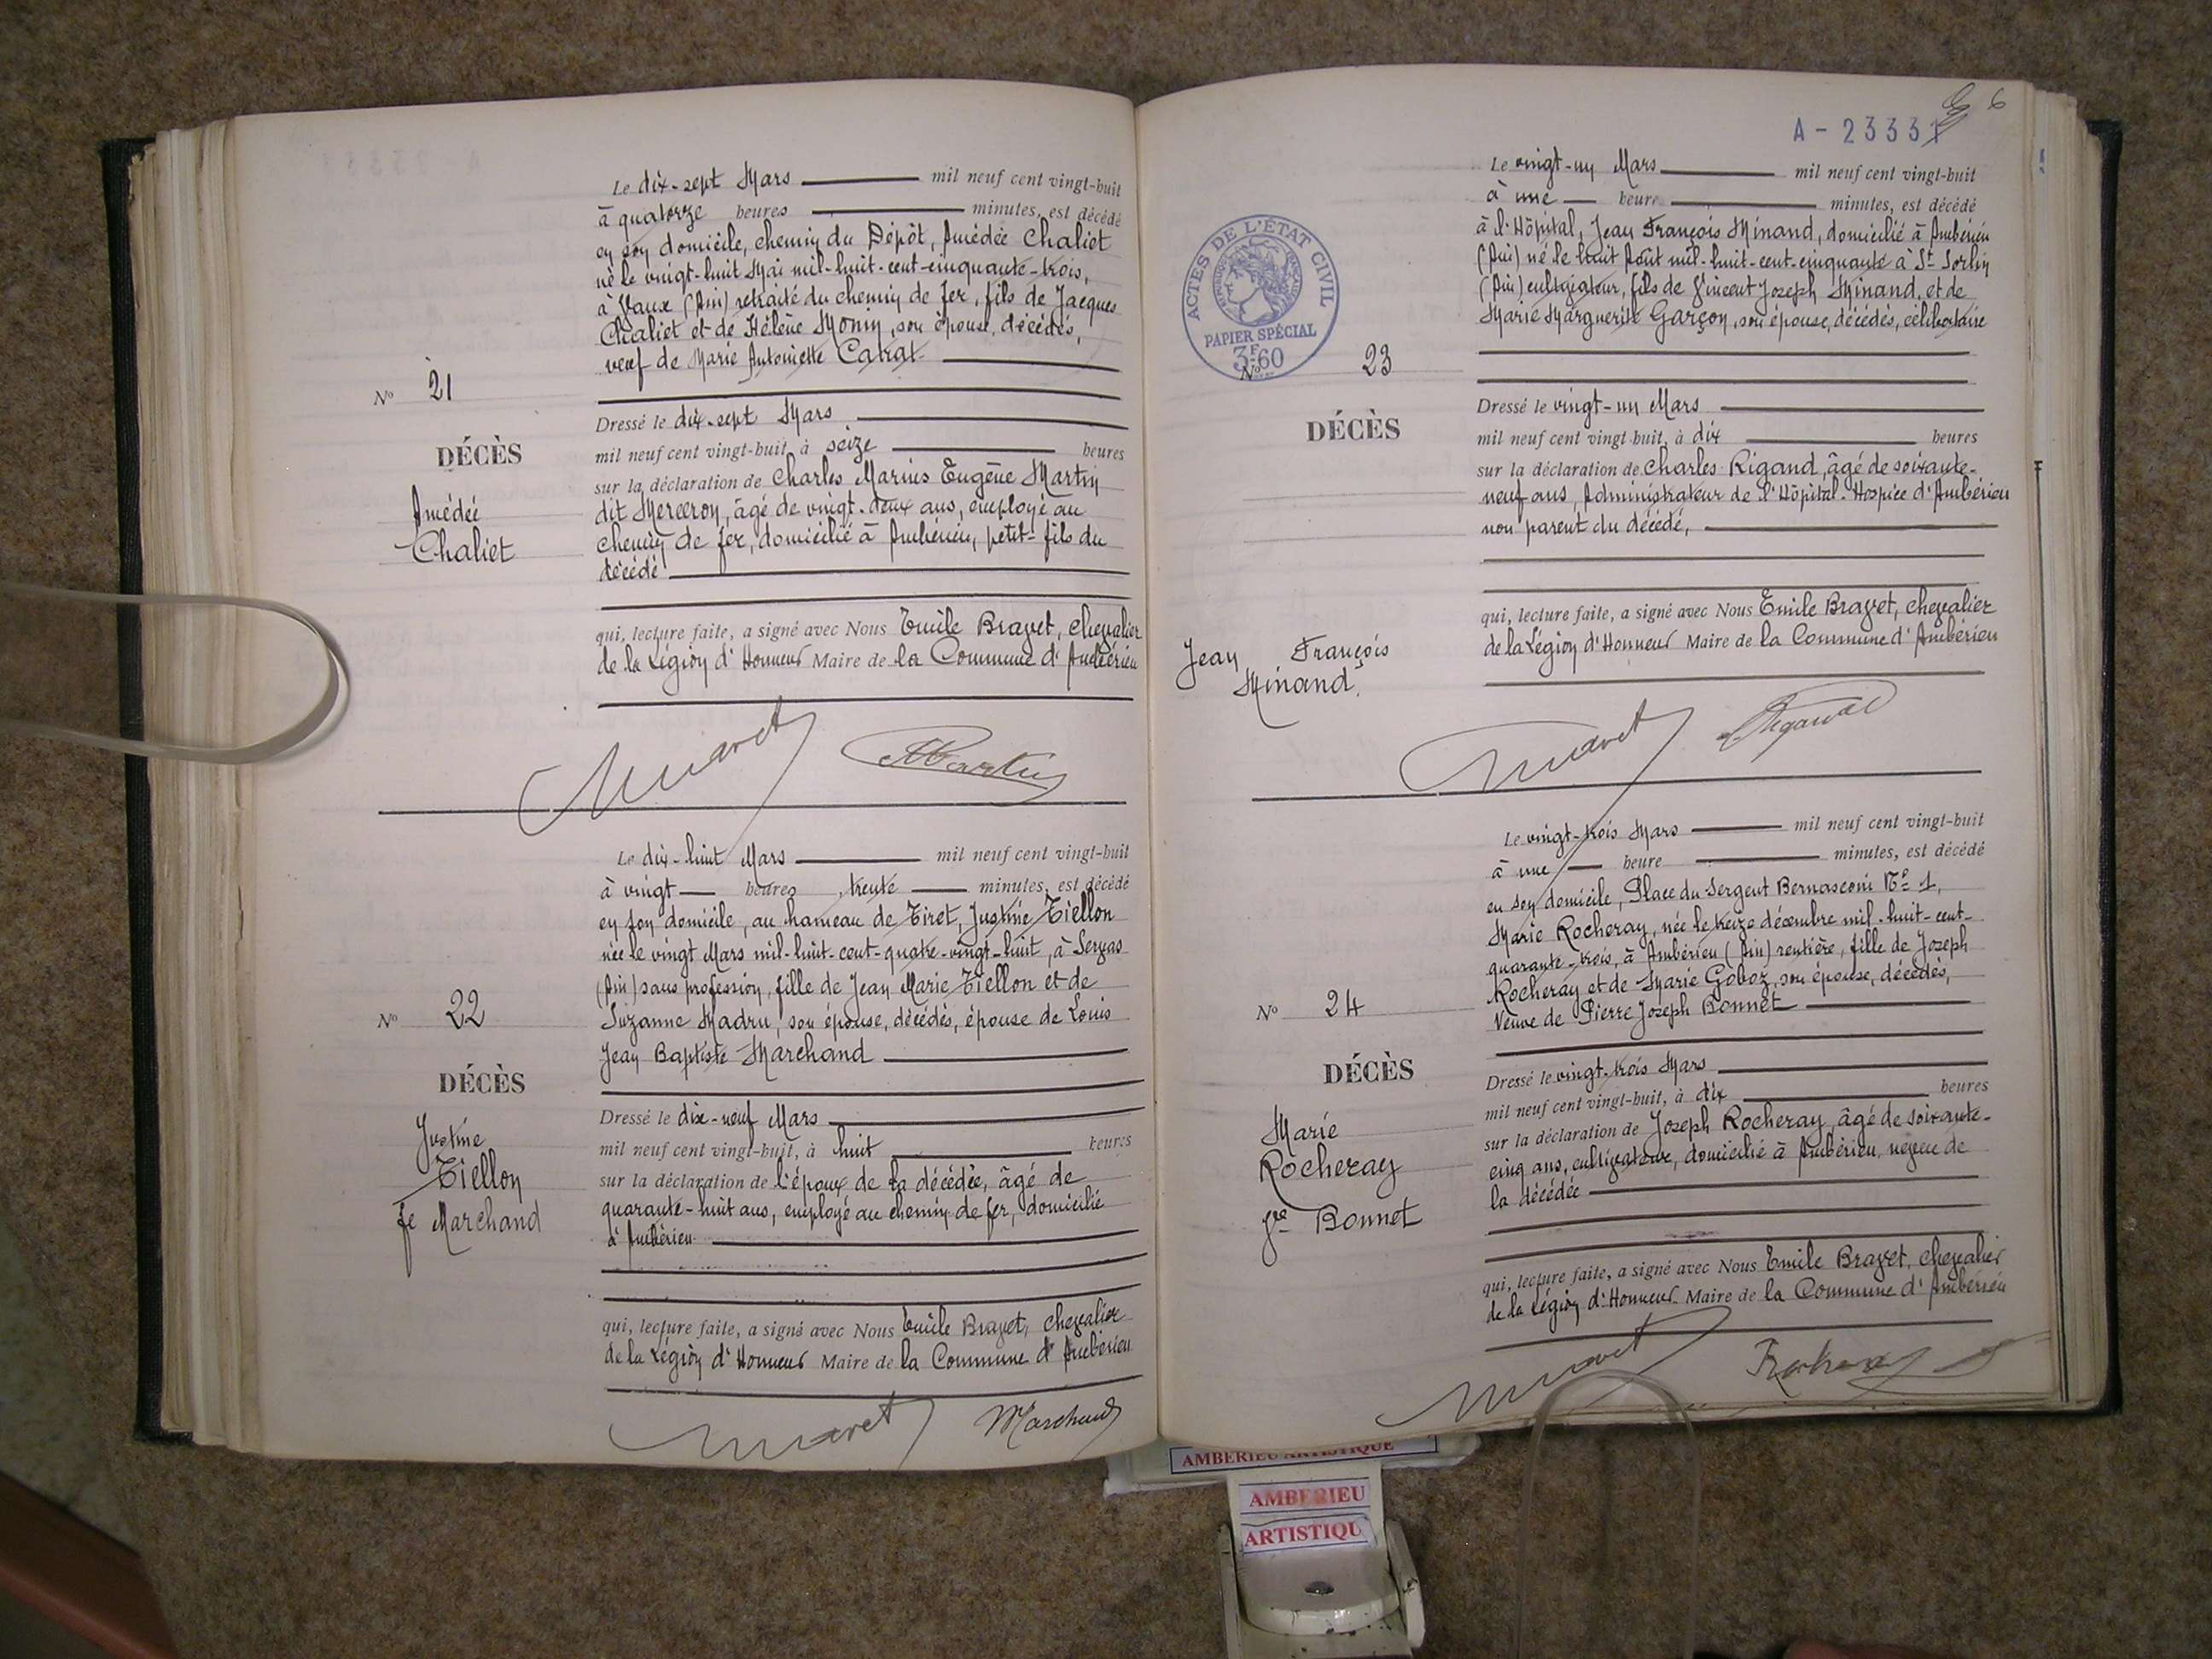 Le dix-sept Mars mil neuf cent vingt-huit
à quatorze heures minutes, est décédé
en son domicile, chemin du Dépôt, Amédée Chaliet
né le vingt-huit Mai mil-huit-cent-cinquante-trois,
à Vaux (Ain) retraité du chemin de fer, fils de Jacques
Chaliet et de Hélène Monin, son épouse, décédés,
veuf de Marie Antoinette
Nº 21
DÉCÈS
Amédée
Chaliet
Dressé le dix-sept Mars
mil neuf cent vingt-huit, à seize heures
sur la déclaration de Charles Marius Eugène Martin
dit Merceron, âgé de vingt-deux ans, employé au
chemin de fer, domicilié à Ambérieu, petit-fils du
décédé
qui, lecture faite, a signé avec Nous Emile Bravet, chevalier
de la Légion d'Honneur Maire de la Commune d'Ambérieu
Bravet Martin
Le dix-huit Mars mil neuf cent vingt-huit
à vingt heures trente minutes, est décédé
en son domicile, au hameau de Tiret, Justine Tiellon
née le vingt Mars mil-huit-cent-quatre-vingt-huit, à Servas
(Ain) sans profession, fille de Jean Marie Tiellon et de
Suzanne Madru, son épouse, décédés, épouse de Louis
Jean Baptiste Marchand
Nº 22
DÉCÈS
Justine
Tiellon
fe Marchand
Dressé le dix-neuf Mars
mil neuf cent vingt-huit, à huit heures
sur la déclaration de l'époux de la décédée, âgé de
quarante-huit ans, employé au chemin de fer, domicilié
à Ambérieu
qui, lecture faite, a signé avec Nous Emile Bravet, chevalier
de la Légion d'Honneur Maire de la Commune d'Ambérieu
Bravet Marchand
6
A-23331
Le vingt-un Mars mil neuf cent vingt-huit
à une heure minutes, est décédé
à l'Hôpital, Jean François Minand, domicilié à Ambérieu
(Ain) né le huit Août mil-huit-cent-cinquante à St Sorlin
(Ain) cultivateur, fils de Vincent Joseph Minand, et de
Marie Marguerite Garçon, son épouse, décédés, célibataire
ACTES DE L'ÉTAT CIVIL
RÉPUBLIQUE FRANÇAISE
PAPIER SPÉCIAL
3F60
Nº 23
DÉCÈS
Jean François
Minand,
Dressé le vingt-un Mars
mil neuf cent vingt-huit, à dix heures
sur la déclaration de Charles Rigaud, âgé de soixante-
neuf ans, Administrateur de l'Hôpital-Hospice d'Ambérieu
non parent du décédé,
qui, lecture faite, a signé avec Nous Emile Bravet, chevalier
de la Légion d'Honneur Maire de la Commune d'Ambérieu
Bravet Rigaud
Le vingt-trois Mars mil neuf cent vingt-huit
à une heure minutes, est décédé
en son domicile, Place du Sergent Bernasconi Nº 1,
Marie Rocheray, née le treize décembre mil-huit-cent-
quarante-trois, à Ambérieu (Ain) rentière, fille de Joseph
Rocheray et de Marie Goboz, son épouse, décédés,
Veuve de Pierre Joseph Bonnet
Nº 24
DÉCÈS
Marie
Rocheray
Vve Bonnet
Dressé le vingt-trois Mars
mil neuf cent vingt-huit, à dix heures
sur la déclaration de Joseph Rocheray, âgé de soixante-
cinq ans, cultivateur, domicilié à Ambérieu, neveu de
la décédée
qui, lecture faite, a signé avec Nous Emile Bravet, chevalier
de la Légion d'Honneur Maire de la Commune d'Ambérieu
Bravet Rocheray
AMBERIEU ARTISTIQUE
AMBERIEU
ARTISTIQU